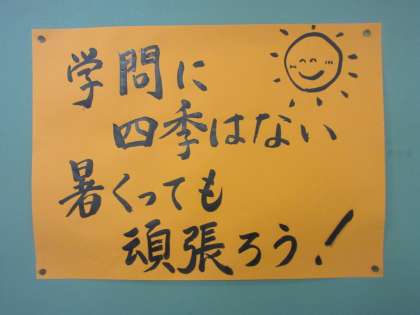 学問に
四季はない
暑くっても
頑張ろう！